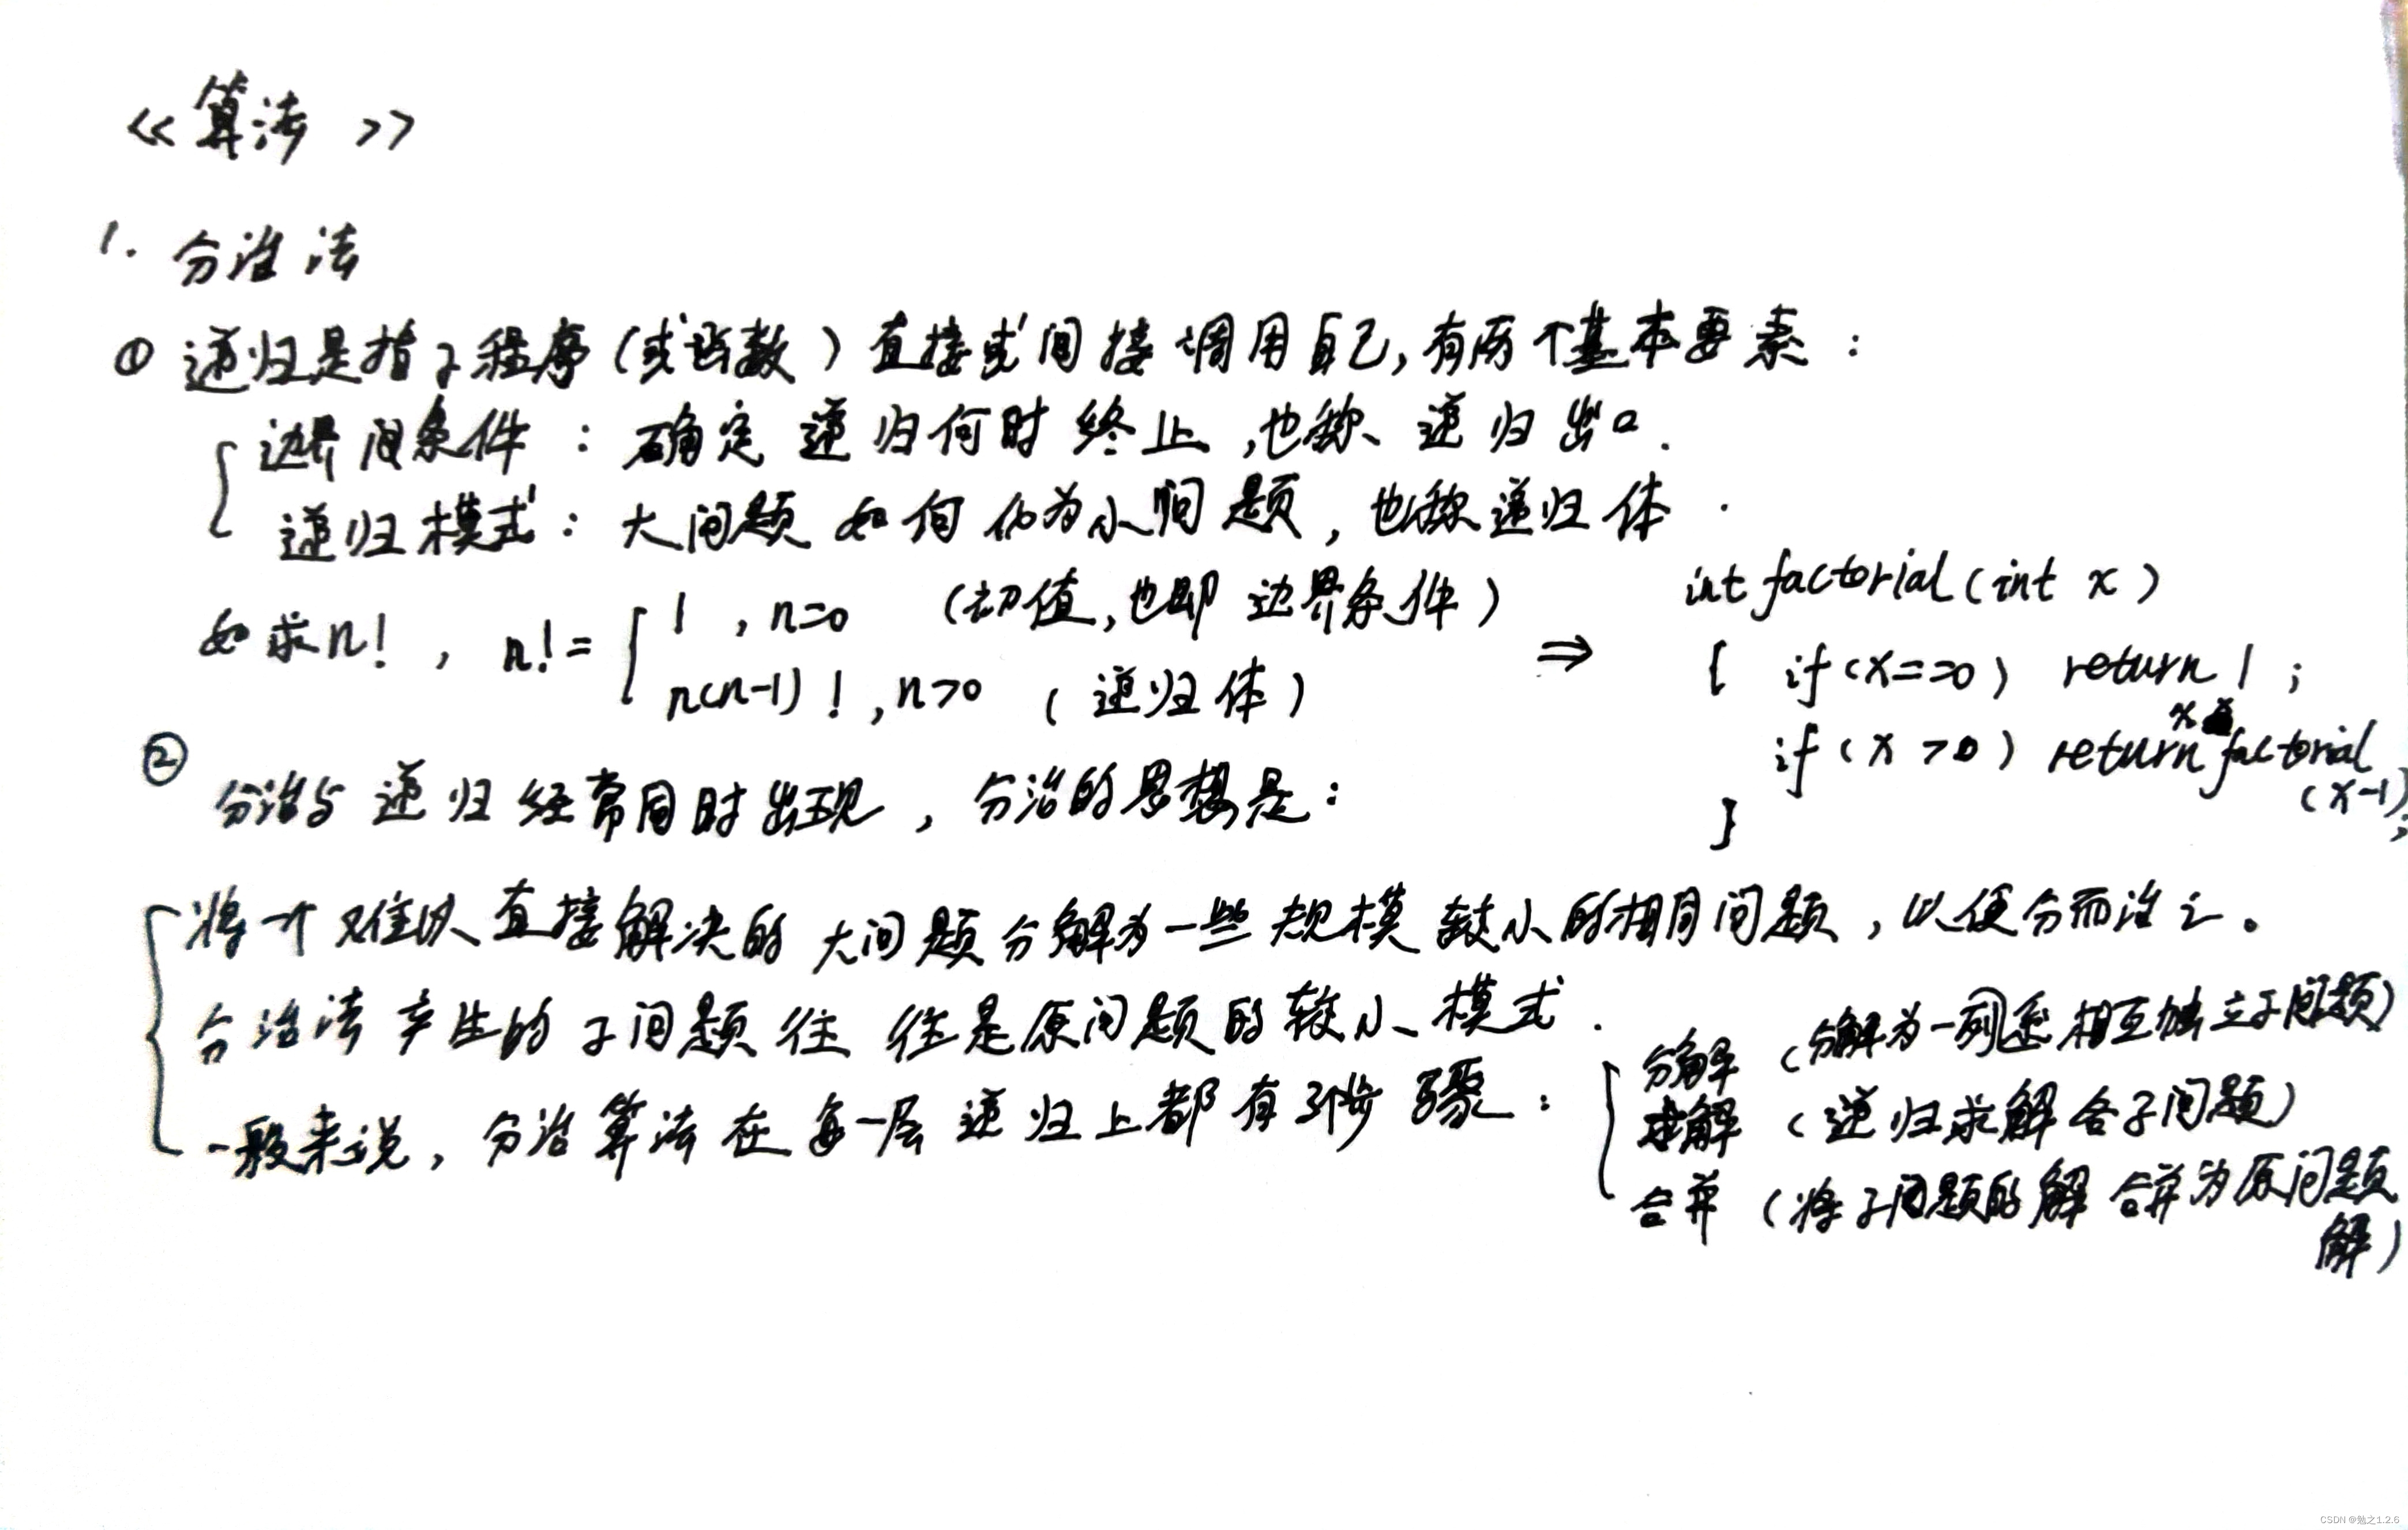 <<算法>>
1. 分治法
① 递归是指子程序(或函数)直接或间接调用自己,有两个基本要素:
边界间条件:确定递归何时终止,也称递归出口.
递归模式:大问题如何化为小问题,也称递归体.
如求n!, n!= { 1, n=0 (初值,也即边界条件)
n(n-1)!, n>0 (递归体)
⇒ int factorial(int x)
{ if(x==0) return 1;
if(x>0) return x factorial
(x-1);
}
② 分治与递归经常同时出现,分治的思想是:
将一个难以直接解决的大问题分解为一些规模较小的相同问题,以便分而治之。
分治法产生的子问题往往是原问题的较小模式.
一般来说,分治算法在每一层递归上都有3个步骤:
分解(分解为一列系相互独立子问题)
求解(递归求解各子问题)
合并(将子问题的解合并为原问题
解)
CSDN @勉之1.2.6